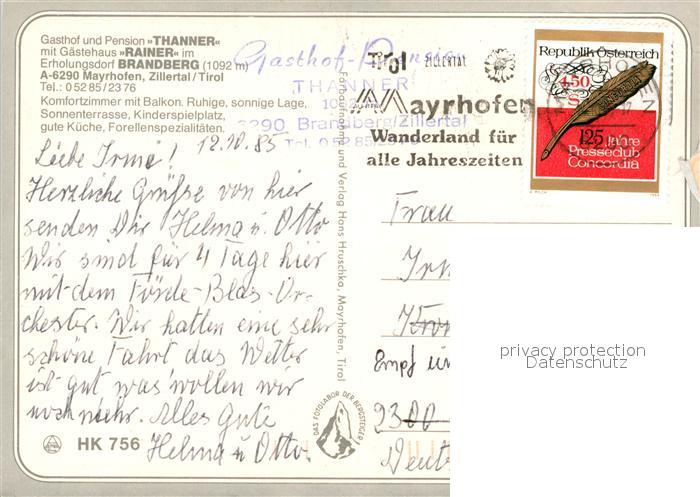 Gasthof und Pension »THANNER«
mit Gästehaus »RAINER« im
Erholungsdorf BRANDBERG (1092 m)
A-6290 Mayrhofen, Zillertal/Tirol
Tel.: 0 52 85/23 76
Komfortzimmer mit Balkon. Ruhige, sonnige Lage,
Sonnenterrasse, Kinderspielplatz,
gute Küche, Forellenspezialitäten.
Gasthof-Pension
THANNER
6290 Brandberg/Zillertal
Tel. 05285/2376
12.10.85
Liebe Irmi!
Herzliche Grüße von hier
senden Dir Helma u. Otto
Wir sind für 4 Tage hier
mit dem Förde-Blas-Or-
chester. Wir hatten eine sehr
schöne Fahrt das Wetter
ist gut was wollen wir
noch mehr. Alles Gute
Helma u Otto.
HK 756
Farbaufnahme und Verlag Hans Hruschka, Mayrhofen, Tirol
DAS FOTOLABOR DER BERGSTEIGER
Tirol ZILLERTAL
Mayrhofen
Wanderland für
alle Jahreszeiten
Republik Österreich
4.50
S
CONCORDIA
125 Jahre
Presseclub
Concordia
Frau
Empf
2300
privacy protection
Datenschutz